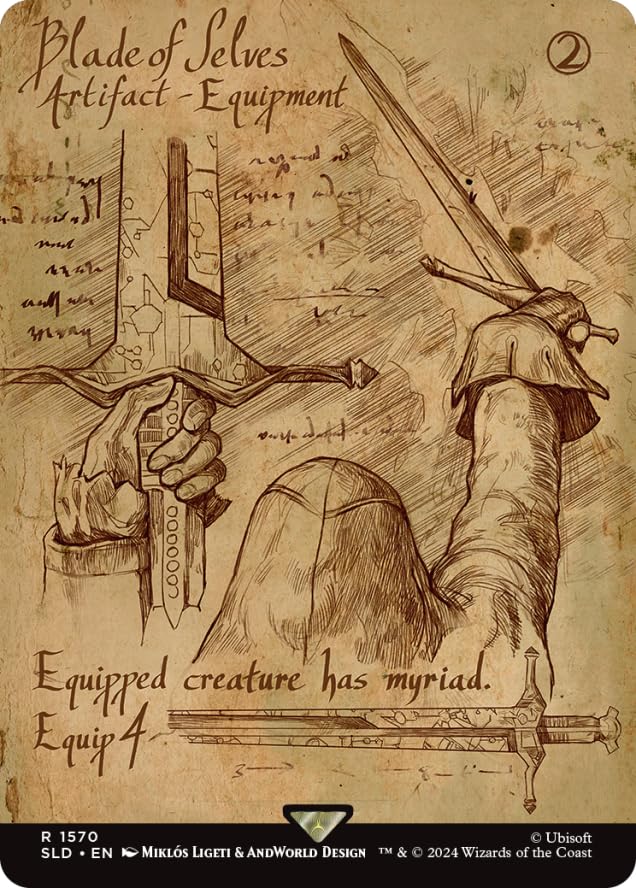 Blade of Selves
2
Artifact - Equipment
Equipped creature has myriad.
Equip 4
R 1570
© Ubisoft
SLD • EN Miklós Ligeti & AndWorld Design ™ & © 2024 Wizards of the Coast